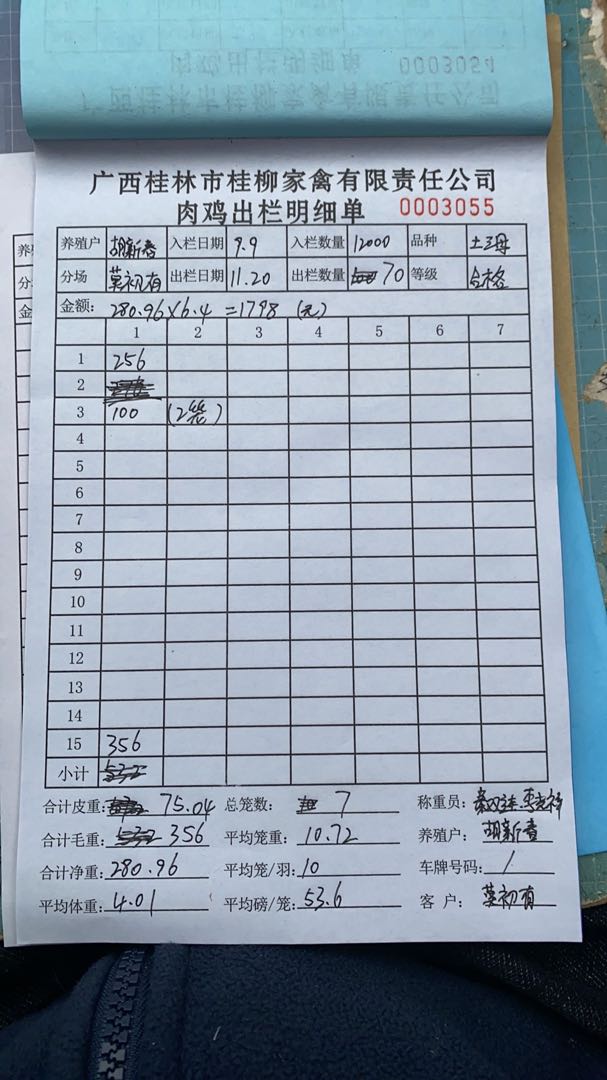 肉鸡出栏明细单 0003054
广西桂林市桂柳家禽有限责任公司
广西桂林市桂柳家禽有限责任公司
肉鸡出栏明细单 0003055
养殖户 胡新春 入栏日期 9.9 入栏数量 12000 品种
分场 莫初有 出栏日期 11.20 出栏数量 70 等级 合格
金额: 280.96×6.4=1798 (元)
1 2 3 4 5 6 7
1 256
2
3 100 (2袋)
4
5
6
7
8
9
10
11
12
13
14
15 356
小计
合计皮重: 75.04 总笼数: 7 称重员:
合计毛重: 356 平均笼重: 10.72 养殖户: 胡新春
合计净重: 280.96 平均笼/羽: 10 车牌号码: /
平均体重: 4.01 平均磅/笼: 53.6 客户: 莫初有